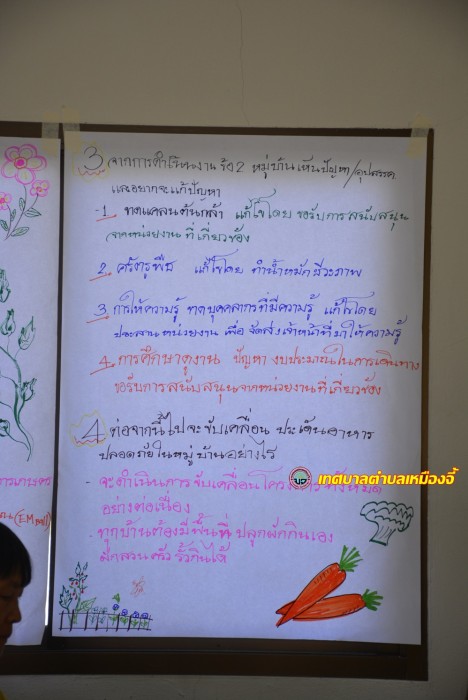 3 จากการดำเนินงาน ข้อ 2 หมู่บ้านเห็นปัญหา/อุปสรรค
และอยากจะแก้ปัญหา
-1. ขาดแคลนต้นกล้า แก้ไขโดย ขอรับการสนับสนุน
จากหน่วยงานที่เกี่ยวข้อง
2. ศรัตรูพืช แก้ไขโดย ทำน้ำหมักชีวะภาพ
3. การให้ความรู้ ขาดบุคคลากรที่มีความรู้ แก้ไขโดย
ประสานหน่วยงาน เพื่อ จัดส่งเจ้าหน้าที่มาให้ความรู้
4. การศึกษาดูงาน ปัญหา งบประมาณในการเดินทาง
ขอรับการสนับสนุนจากหน่วยงานที่เกี่ยวข้อง
4 ต่อจากนี้ไปจะขับเคลื่อน ประเด็นอาหาร
ปลอดภัยในหมู่บ้านอย่างไร
- จะดำเนินการขับเคลื่อน
เทศบาลตำบลเหมืองจี้
อย่างต่อเนื่อง
- ทุกบ้านต้องมีพื้นที่ปลูกผักกินเอง
ผักสวนครัว รั้วกินได้